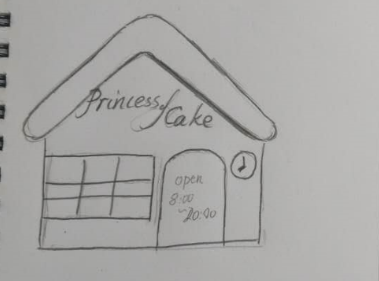 Princess Cake
open
8:00
~20:00